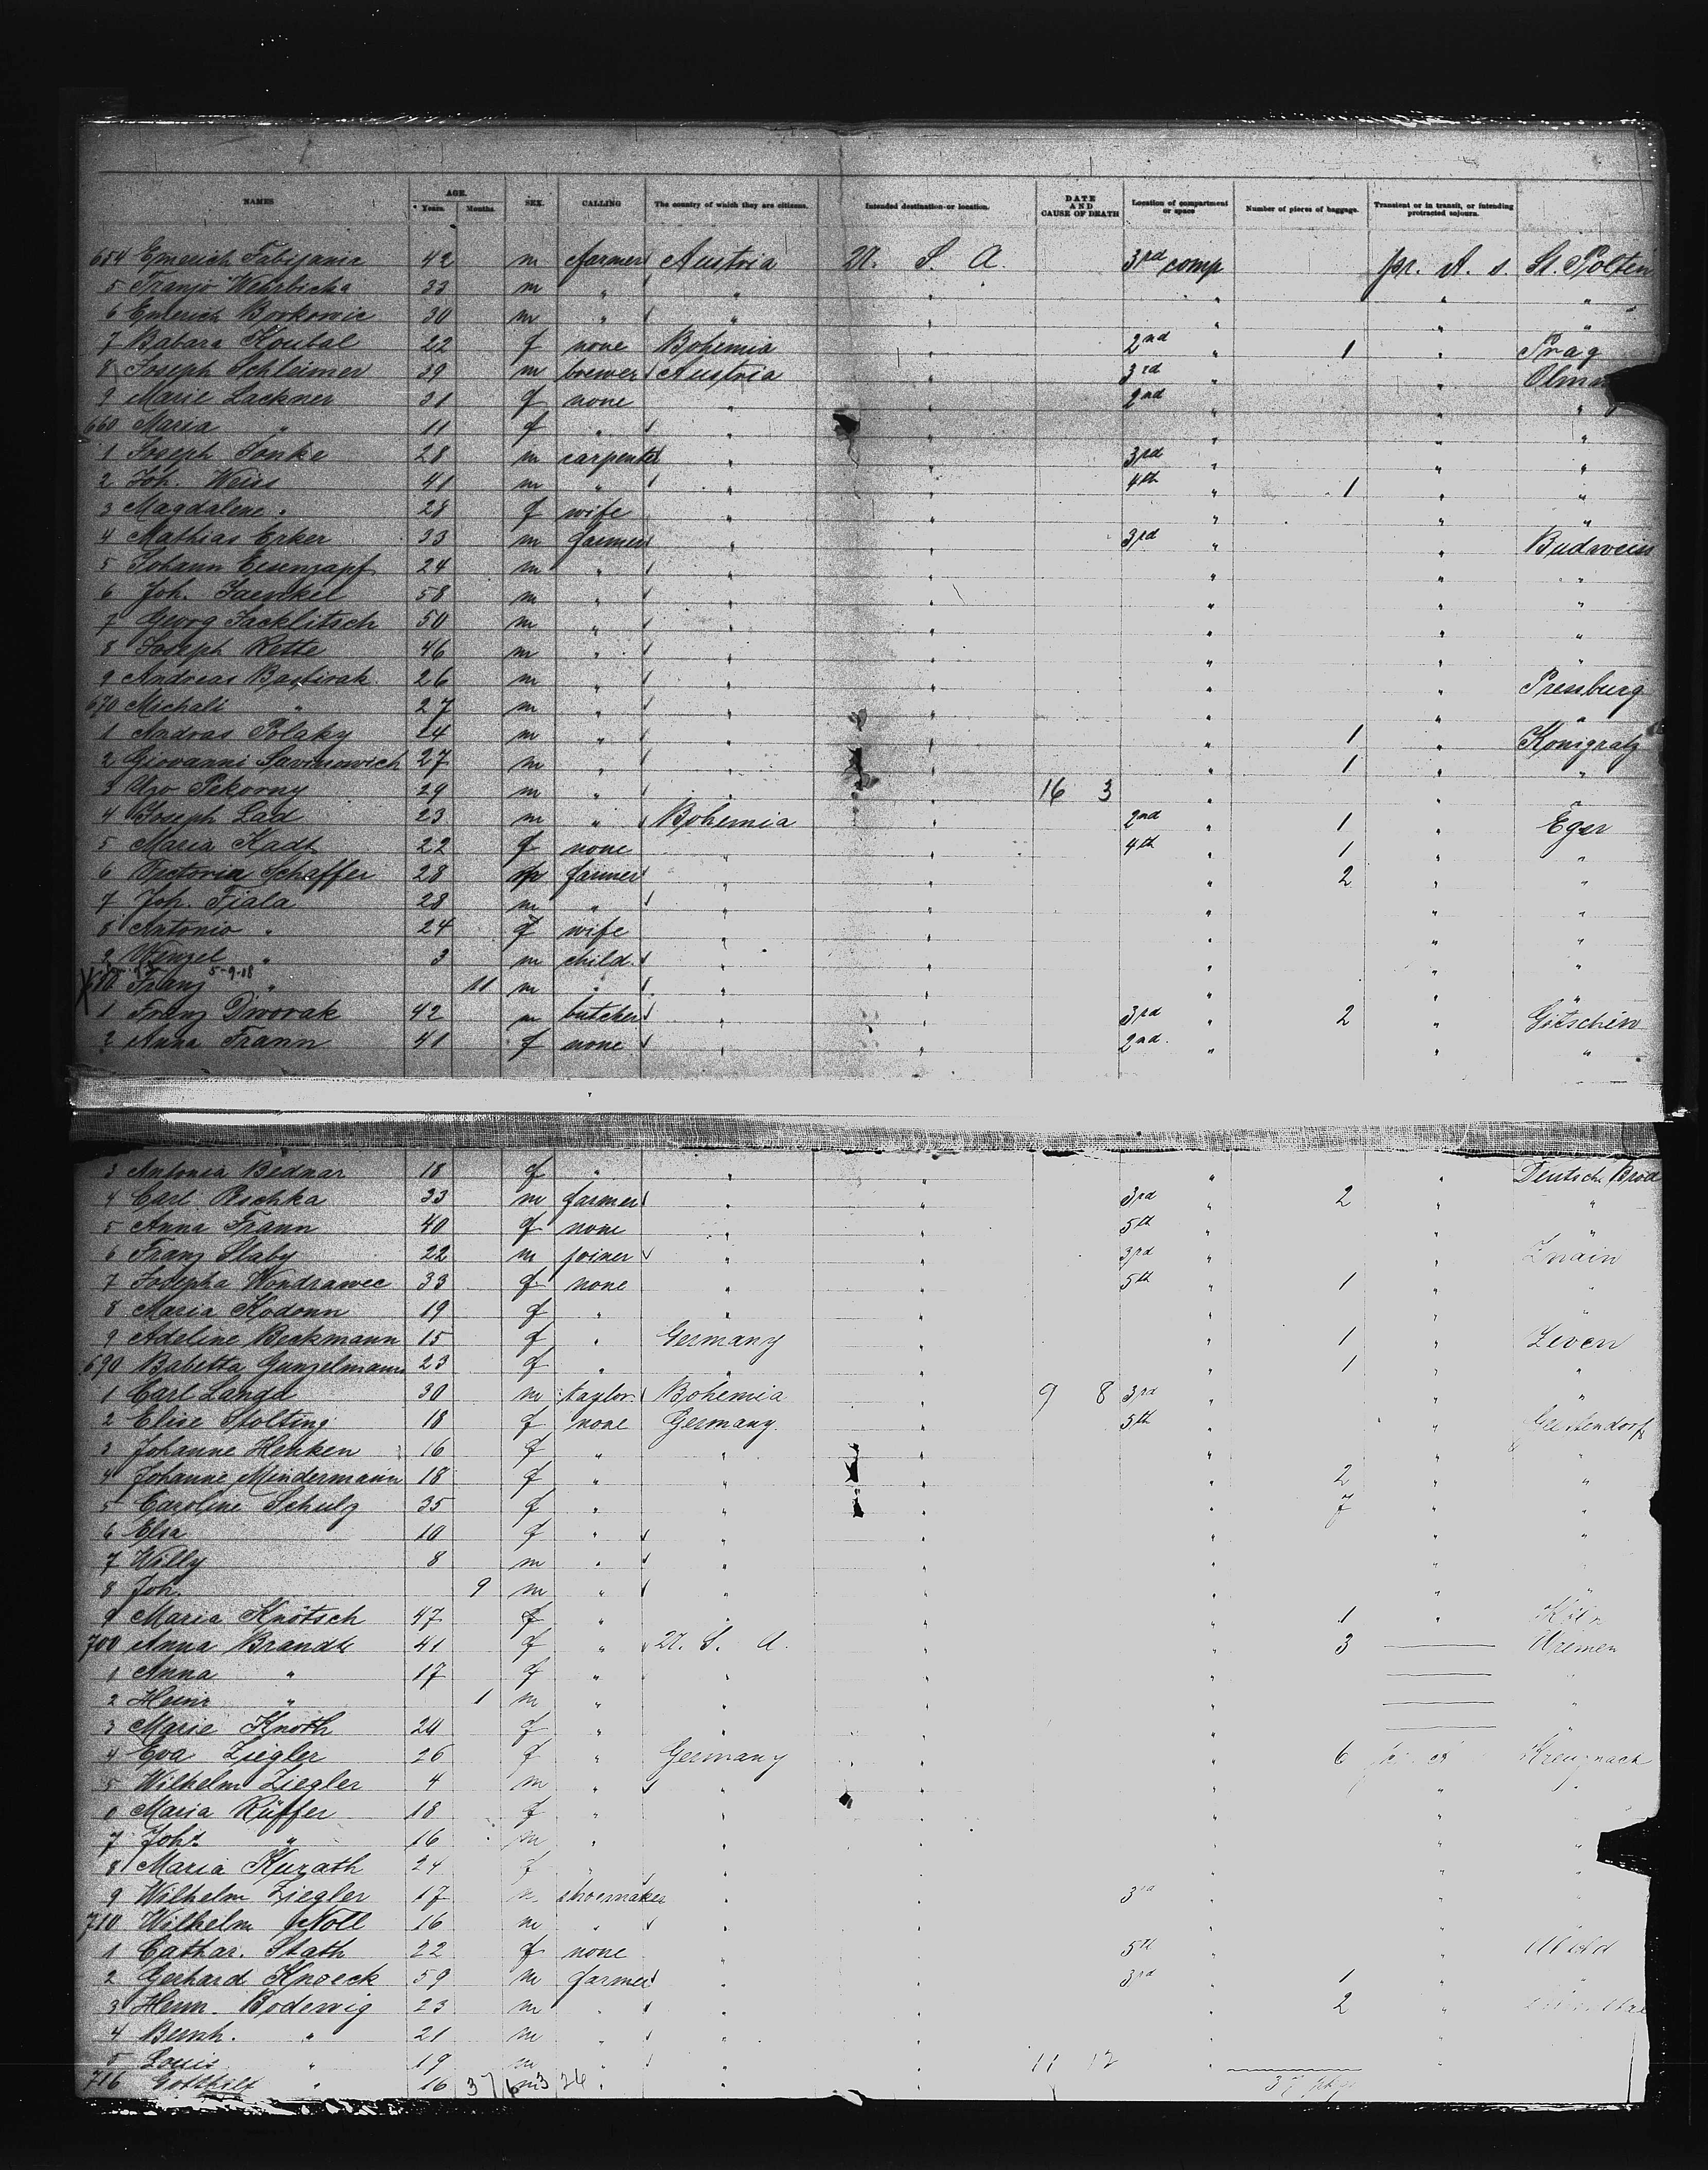 NAMES AGE. Years. Months. SEX. CALLING The country of which they are citizens. Intended destination or location. DATE AND CAUSE OF DEATH Location of compartment or space Number of pieces of baggage. Transient or in transit, or intending protracted sojourn.
654 Emerich Fabijanic 42 m farmer Austria U. S. A. 3rd comp pr. A. s. St. Polten
5 Franjo Wehrbicha 33 m " " " " " "
6 Emerich Borkovic 30 m " " " " " "
7 Babara Koubal 22 f none Bohemia " 2nd " 1 " Prag
8 Joseph Schleimer 39 m brewer Austria " 3rd " "
9 Marie Lackner 31 f none " " 2nd " " "
660 Maria " 11 f " " " " " "
1 Joseph Jonke 28 m carpenter " " 3rd " " "
2 Joh. Weiss 41 m " " " 4th " 1 " "
3 Magdalene " 28 f wife " " " " "
4 Mathias Erker 33 m farmer " " 3rd " " Budweiss
5 Johann Eisenzapf 24 m " " " " " "
6 Joh. Jaenkel 58 m " " " " " "
7 Georg Jacklitsch 50 m " " " " " "
8 Joseph Rette 46 m " " " " " "
9 Andreas Bastirak 26 m " " " " " Pressburg
670 Michali " 27 m " " " " " "
1 Andras Polaky 24 m " " " " 1 " Konigratz
2 Giovanni Savinowich 27 m " " " " 1 " "
3 Pekorny 29 m " " " 16 3 " "
4 Joseph Lad 23 m " Bohemia " 2nd " 1 " Eger
5 Maria Kadt 22 f none " " 4th " 1 " "
6 Victoria Schaffer 28 farmer " " " 2 " "
7 Joh. Fiala 28 m " " " " " "
8 Antonio " 24 f wife " " " " "
9 Wenzel " 3 m child " " " " "
680 Franz 5-9-18 " 11 m " " " " " "
1 Franz Dworak 42 m butcher " " 3rd " 2 " Gitschin
2 Anna Frann 41 f none " " 2nd " " "
3 Antonia Bednar 18 f " " " " " Deutsch Brod
4 Carl Rschka 33 m farmer " " 3rd " 2 " "
5 Anna Frann 40 f none " " 5th " " "
6 Franz Slaby 22 m joiner " " 3rd " " Znain
7 Josepha Wondrawec 33 f none " " 5th " 1 " "
8 Maria Kodonn 19 f " " " " " "
9 Adeline Beckmann 15 f " Germany " " 1 " Zeven
690 Babetta Gunzelmann 23 f " " " " 1 " "
1 Carl Langa 30 m taylor Bohemia " 9 8 3rd " " "
2 Elise Stolting 18 f none Germany " 5th " " Geestendorf
3 Johanne Henken 16 f " " " " " "
4 Johanne Mindermann 18 f " " " " 2 " "
5 Caroline Schulz 35 f " " " " 7 " "
6 Elsa 10 f " " " " " "
7 Willy 8 m " " " " " "
8 Joh. 9 m " " " " " "
9 Maria Knötsch 47 f " " " " 1 "
700 Anna Brandt 41 f " U. S. A. " " 3 Bremen
1 Anna " 17 f " " " " "
2 Heinr " 1 m " " " " "
3 Marie Knoth 24 f " " " " "
4 Eva Ziegler 26 f " Germany " " 6 Kreuznach
5 Wilhelm Ziegler 4 m " " " " " "
6 Maria Rüffer 18 f " " " " " "
7 Joh. " 16 m " " " " " "
8 Maria Kurath 24 f " " " " " "
9 Wilhelm Ziegler 17 m shoemaker " " 3rd " " "
710 Wilhelm Noll 16 m " " " " " "
1 Cathar. Stath 22 f none " " 5th " "
2 Gerhard Knoeck 59 m farmer " " 3rd " 1 " "
3 Herm. Bodewig 23 m " " " " 2 "
4 Bernh. " 21 m " " " " " "
5 Louis " 19 m " " " 11 12 " "
716 Gotthilf " 16 m " " "